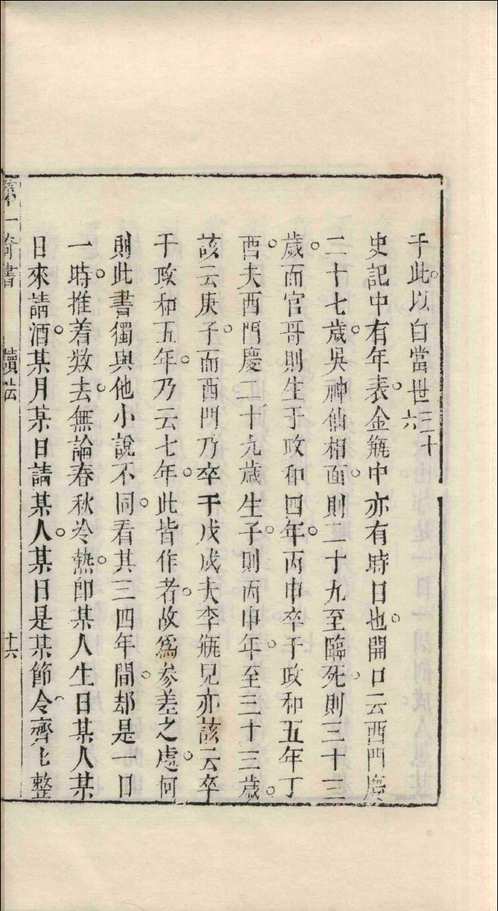 于此以自當世三十六
史記中有年表金瓶中亦有時日也開口云西門慶
二十七歲吳神仙相面則二十九至臨死則三十三
歲而官哥則生于政和四年丙申卒于政和五年丁
酉夫西門慶二十九歲生子則丙申年至三十三歲
該云庚子而西門乃卒于戊戌夫李瓶兒亦該云卒
于政和五年乃云七年此皆作者故為參差之處何
則此書獨與他小說不同看其三四年間却是一日
一時推着數去無論春秋冷熱即某人生日某人某
日來請酒某月某日請某人某日是某節令齊齊整
第一奇書 讀法 十六